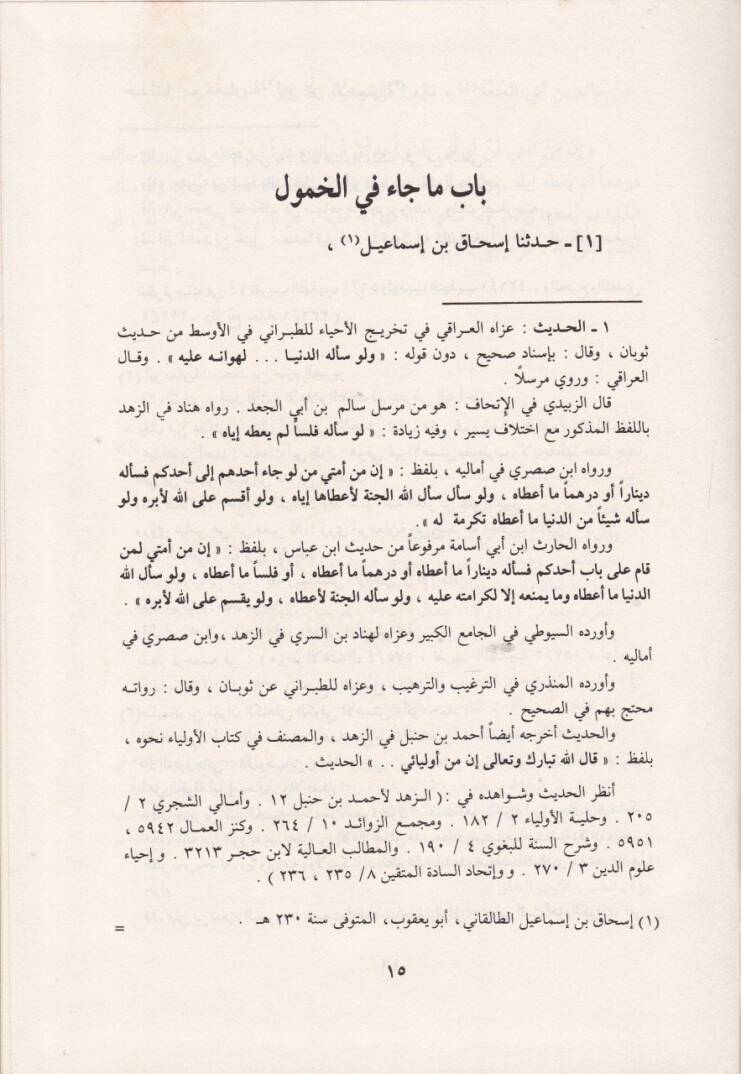 باب ما جاء في الخمول
[١] ـ حدثنا إسحاق بن إسماعيل(١) ،
١ ـ الحديث : عزاه العراقي في تخريج الأحياء للطبراني في الأوسط من حديث
ثوبان ، وقال : بإسناد صحيح ، دون قوله : « ولو سأله الدنيا . . . لهوانه عليه » . وقال
العراقي : وروي مرسلًا .
قال الزبيدي في الإتحاف : هو من مرسل سالم بن أبي الجعد . رواه هناد في الزهد
باللفظ المذكور مع اختلاف يسير ، وفيه زيادة : « لو سأله فلساً لم يعطه إياه » .
ورواه ابن صصري في أماليه ، بلفظ : « إن من أمتي من لو جاء أحدهم إلى أحدكم فسأله
ديناراً أو درهماً ما أعطاه ، ولو سأل سأل الله الجنة لأعطاها إياه ، ولو أقسم على الله لأبره ولو
سأله شيئاً من الدنيا ما أعطاه تكرمة له ».
ورواه الحارث ابن أبي أسامة مرفوعاً من حديث ابن عباس ، بلفظ : « إن من أمتي لمن
قام على باب أحدكم فسأله ديناراً ما أعطاه أو درهماً ما أعطاه ، أو فلساً ما أعطاه ، ولو سأل الله
الدنيا ما أعطاه وما يمنعه إلا لكرامته عليه ، ولو سأله الجنة لأعطاه ، ولو يقسم على الله لأبره » .
وأورده السيوطي في الجامع الكبير وعزاه لهناد بن السري في الزهد ،وابن صصري في
أماليه .
وأورده المنذري في الترغيب والترهيب ، وعزاه للطبراني عن ثوبان ، وقال : رواته
محتج بهم في الصحيح .
والحديث أخرجه أيضاً أحمد بن حنبل في الزهد ، والمصنف في كتاب الأولياء نحوه ،
بلفظ : « قال الله تبارك وتعالى إن من أوليائي . . » الحديث .
أنظر الحديث وشواهده في :( الزهد لأحمد بن حنبل ١٢ . وأمالي الشجري ٢ /
٢٠٥ . وحلية الأولياء ٢ / ١٨٢ . ومجمع الزوائد ١٠ / ٢٦٤ . وكنز العمال ٥٩٤٢ ،
٥٩٥١ . وشرح السنة للبغوي ٤ / ١٩٠ . والمطالب العالية لابن حجر ٣٢١٣ . و إحياء
علوم الدين ٣ / ٢٧٠ . و وإتحاد السادة المتقين ٨/ ٢٣٥ ، ٢٣٦ ) .
(١) إسحاق بن إسماعيل الطالقاني ، أبو يعقوب، المتوفى سنة ٢٣٠ هـ .
=
١٥